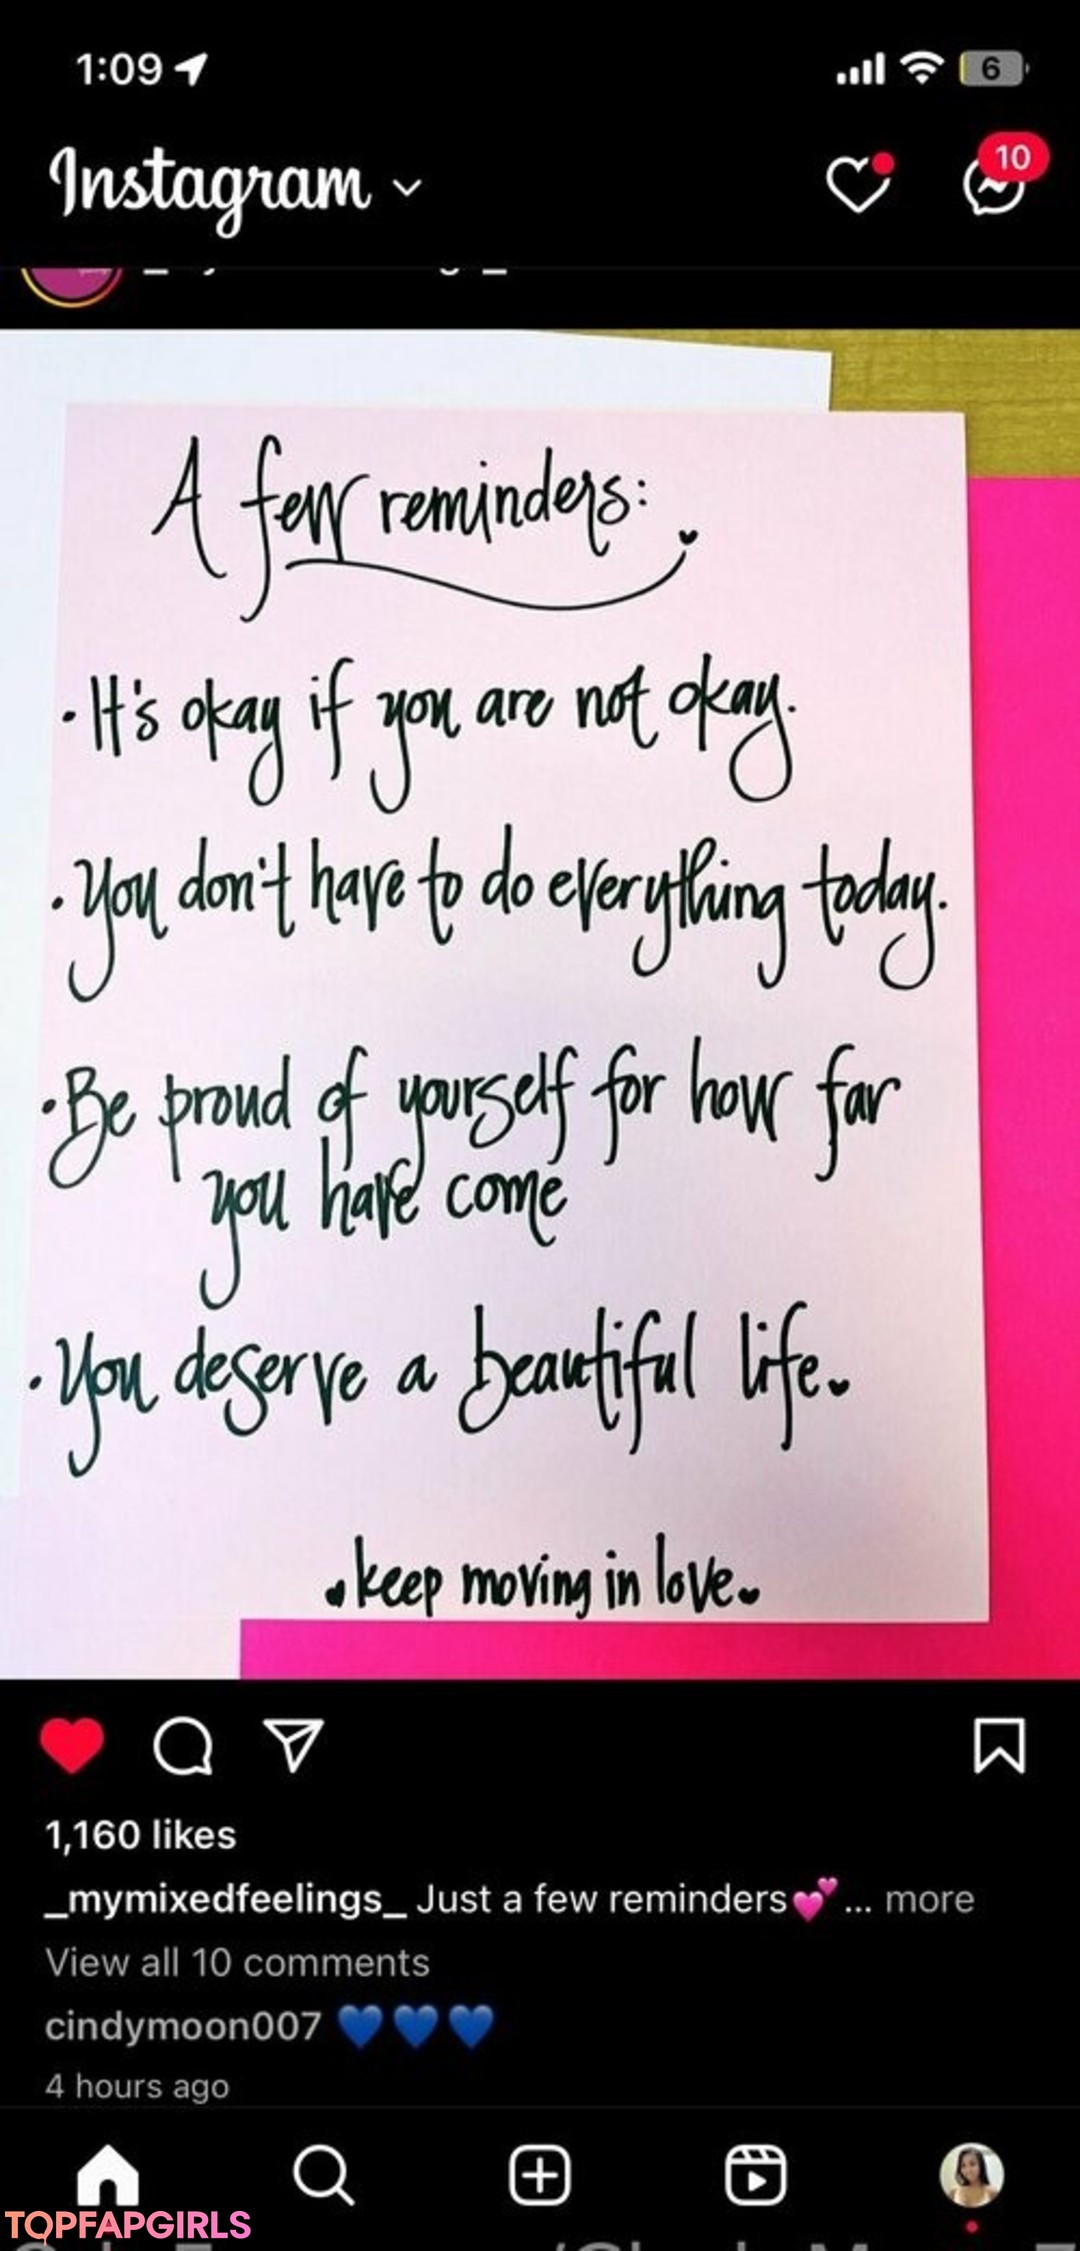 1:09
6
Instagram
10
A few reminders:
· It's okay if you are not okay.
· You don't have to do everything today.
· Be proud of yourself for how far
you have come
· You deserve a beautiful life.
keep moving in love
1,160 likes
_mymixedfeelings_ Just a few reminders💕... more
View all 10 comments
cindymoon007 💙💙💙
4 hours ago
TOPFAPGIRLS